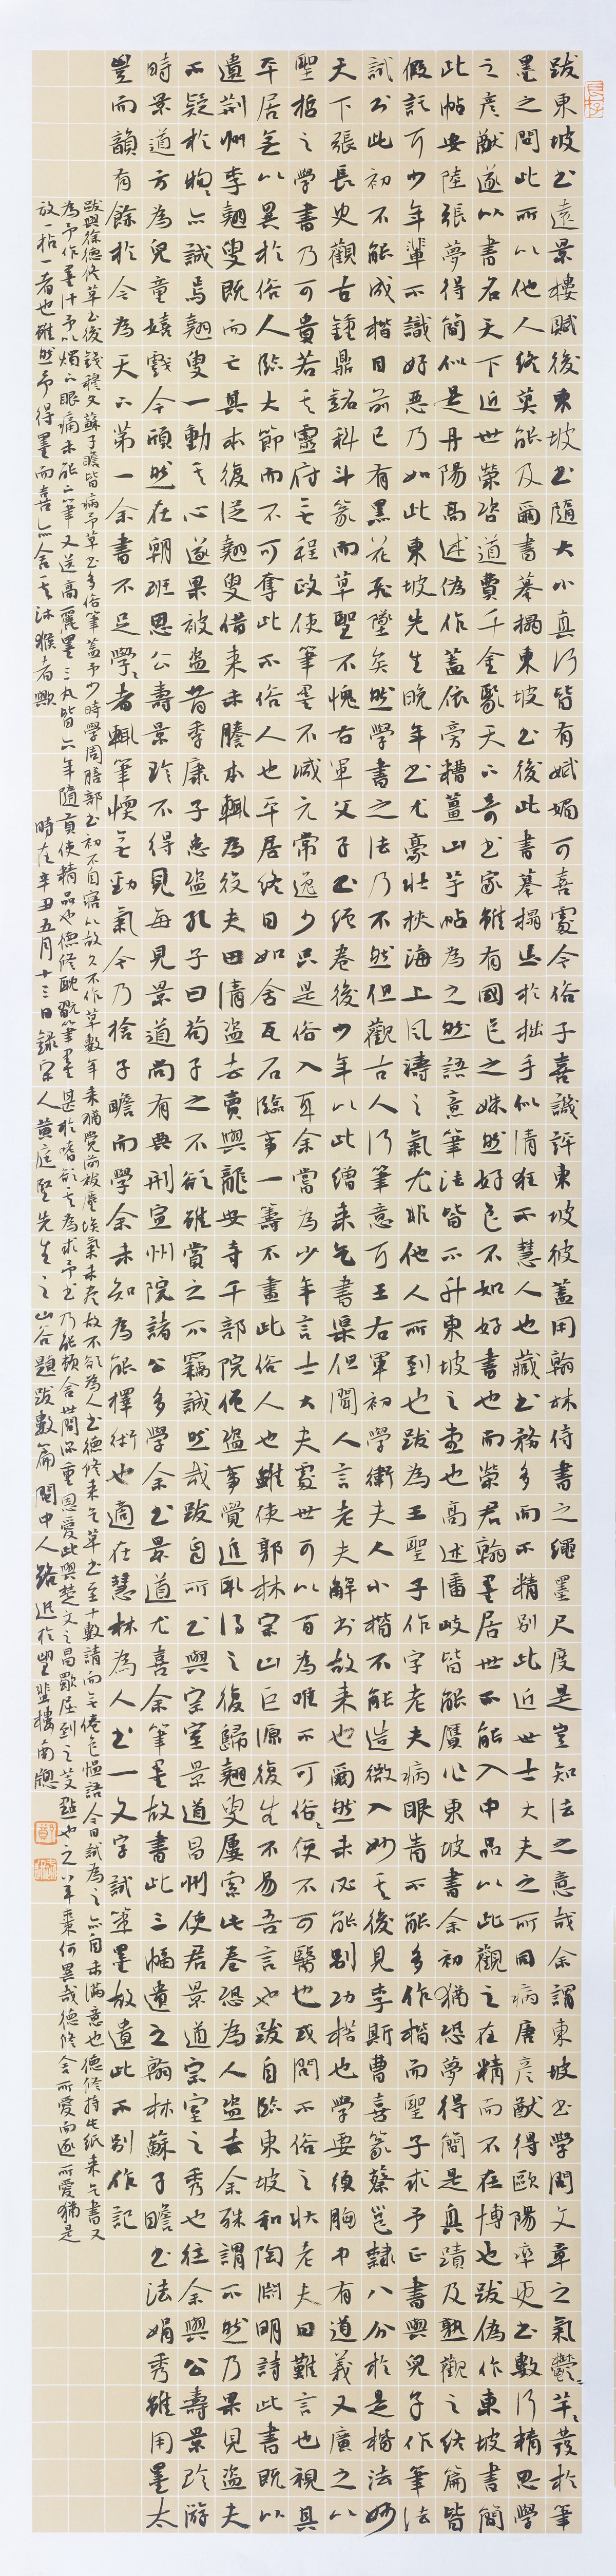 跋東坡书遠景樓賦後東坡书隨大小真行皆有娬媚可喜處今俗子喜譏評東坡彼蓋用翰林侍書之繩墨尺度是豈知法之意哉余謂東坡书學問文章之氣鬱〻芊〻發於筆
墨之間此所以他人終莫能及爾書摹搨東坡书後此書摹搨出於拙手似清狂不慧人也藏书務多而不精別此近世士大夫之所同病唐彦猷得歐陽率更书數行精思學
之彦猷遂以書名天下近世榮咨道費千金聚天下奇书家雖有國色之姝然好色不如好書也而榮君翰墨居世不能入中品以此觀之在精而不在博也跋偽作東坡書簡
此帖安陸張夢得簡似是丹陽高述偽作蓋依旁糟薑山芋帖為之然語意筆法皆不升東坡之堂也高述潘岐皆能贋作東坡書余初猶恐夢得簡是真蹟及熟觀之終篇皆
假託可少年輩不識好惡乃如此東坡先生晚年书尤豪壯挾海上風濤之氣尤非他人所到也跋為王聖子作字老夫病眼昏不能多作楷而聖子求予正書與兒子作筆法
試书此初不能成楷目前已有黑花飛墜矣然學書之法乃不然但觀古人行筆意可王右軍初學衛夫人小楷不能造微入妙其後見李斯曹喜篆蔡邕隸八分於是楷法妙
天下張長史觀古鍾鼎銘科斗篆而草聖不愧右軍父子书繒卷後少年以此繒來乞書渠但聞人言老夫解书故來也爾然未必能別功楛也學要須胸中有道義又廣之以
聖哲之學書乃可貴若其靈府無程政使筆墨不減元常逸少只是俗人耳余嘗為少年言士大夫處世可以百為唯不可俗〻便不可醫也或問不俗之狀老夫曰難言也視其
平居無以異於俗人臨大節而不可奪此不俗人也平居終日如舍瓦石臨事一籌不畫此俗人也雖使郭林宗山巨源復生不易吾言也跋自臨東坡和陶淵明詩此書既以
遺荊州李翹叟既而亡其本復從翹叟借來未謄本輒為役夫田清盜去賣與龍安寺千部院僧盜事覺追取得之復歸翹叟屢索此卷恐為人盜去余殊謂不然乃果見盜夫
不疑於物〻亦誠焉翹叟一動其心遂果被盜昔季康子患盜孔子曰苟子之不欲雖賞之不竊誠然哉跋自所书與宗室景道昌州使君景道宗室之秀也往余與公壽景珍游
時景道方為兒童嬉戲今頎然在朝班思公壽景珍不得見每見景道尚有典刑宣州院諸公多學余书景道尤喜余筆墨故書此三幅遺之翰林蘇子瞻书法娟秀雖用墨太
豐而韻有餘於今為天下第一余書不足學〻者輒筆愞無勁氣今乃捨子瞻而學余未知為能擇術也適在慧林為人书一文字試筆墨故遺此不別作記
跋與徐德修草书後錢穆父蘇子瞻皆病予草书多俗筆蓋予少時學周膳部书初不自寤以故久不作草數年來猶覺湔祓塵埃氣未盡故不欲為人书德修來乞草书至十數請而無倦色慍語今日試為之亦自未滿意也德修持此紙來乞書又
為予作墨汁予以燭下眼痛未能下筆又送高麗墨三丸皆六年隨貢使精品也德修耽翫筆墨甚於嗜欲其為求予书乃能頓舍世間深重恩愛此與楚文之昌歜屈到之芰點也之羊棗何異哉德修舍所愛而逐所愛猶是
放一拈一者也雖然予得墨而喜亦舍其沐猴者歟　時在辛丑五月十三日錄宋人黃庭堅先生之山谷題跋數篇閩中人路迅於塱蜚樓南牕